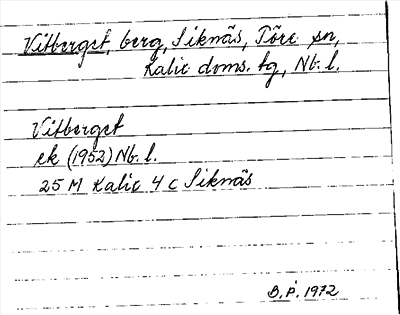 Vitberget, berg, Siknäs, Töre sn,
Kalix doms. tg, Nb. l.
Vitberget
ek (1952) Nb. l.
25 M Kalix 4 c Siknäs
B. P. 1972